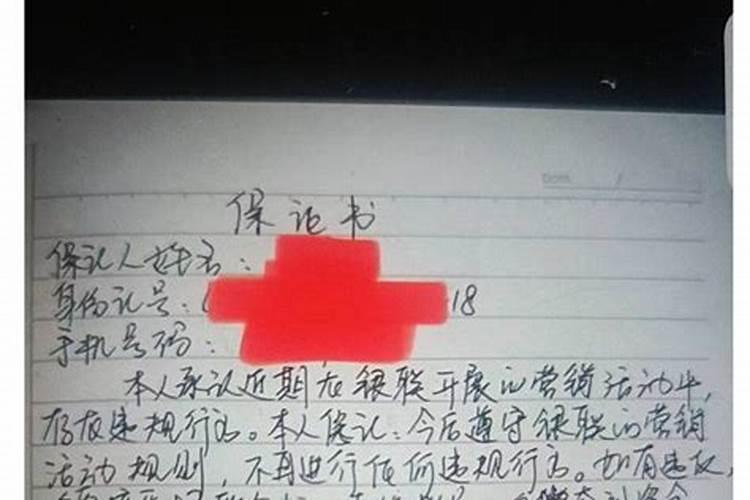 Date. /
保证书
保证人姓名:
身份证号: 18
手机号码:
本人承认近期在银联开展的营销活动中,
存在违规行为。本人保证:今后遵守银联的营销
活动规则,不再进行任何违规行为。如有违反,